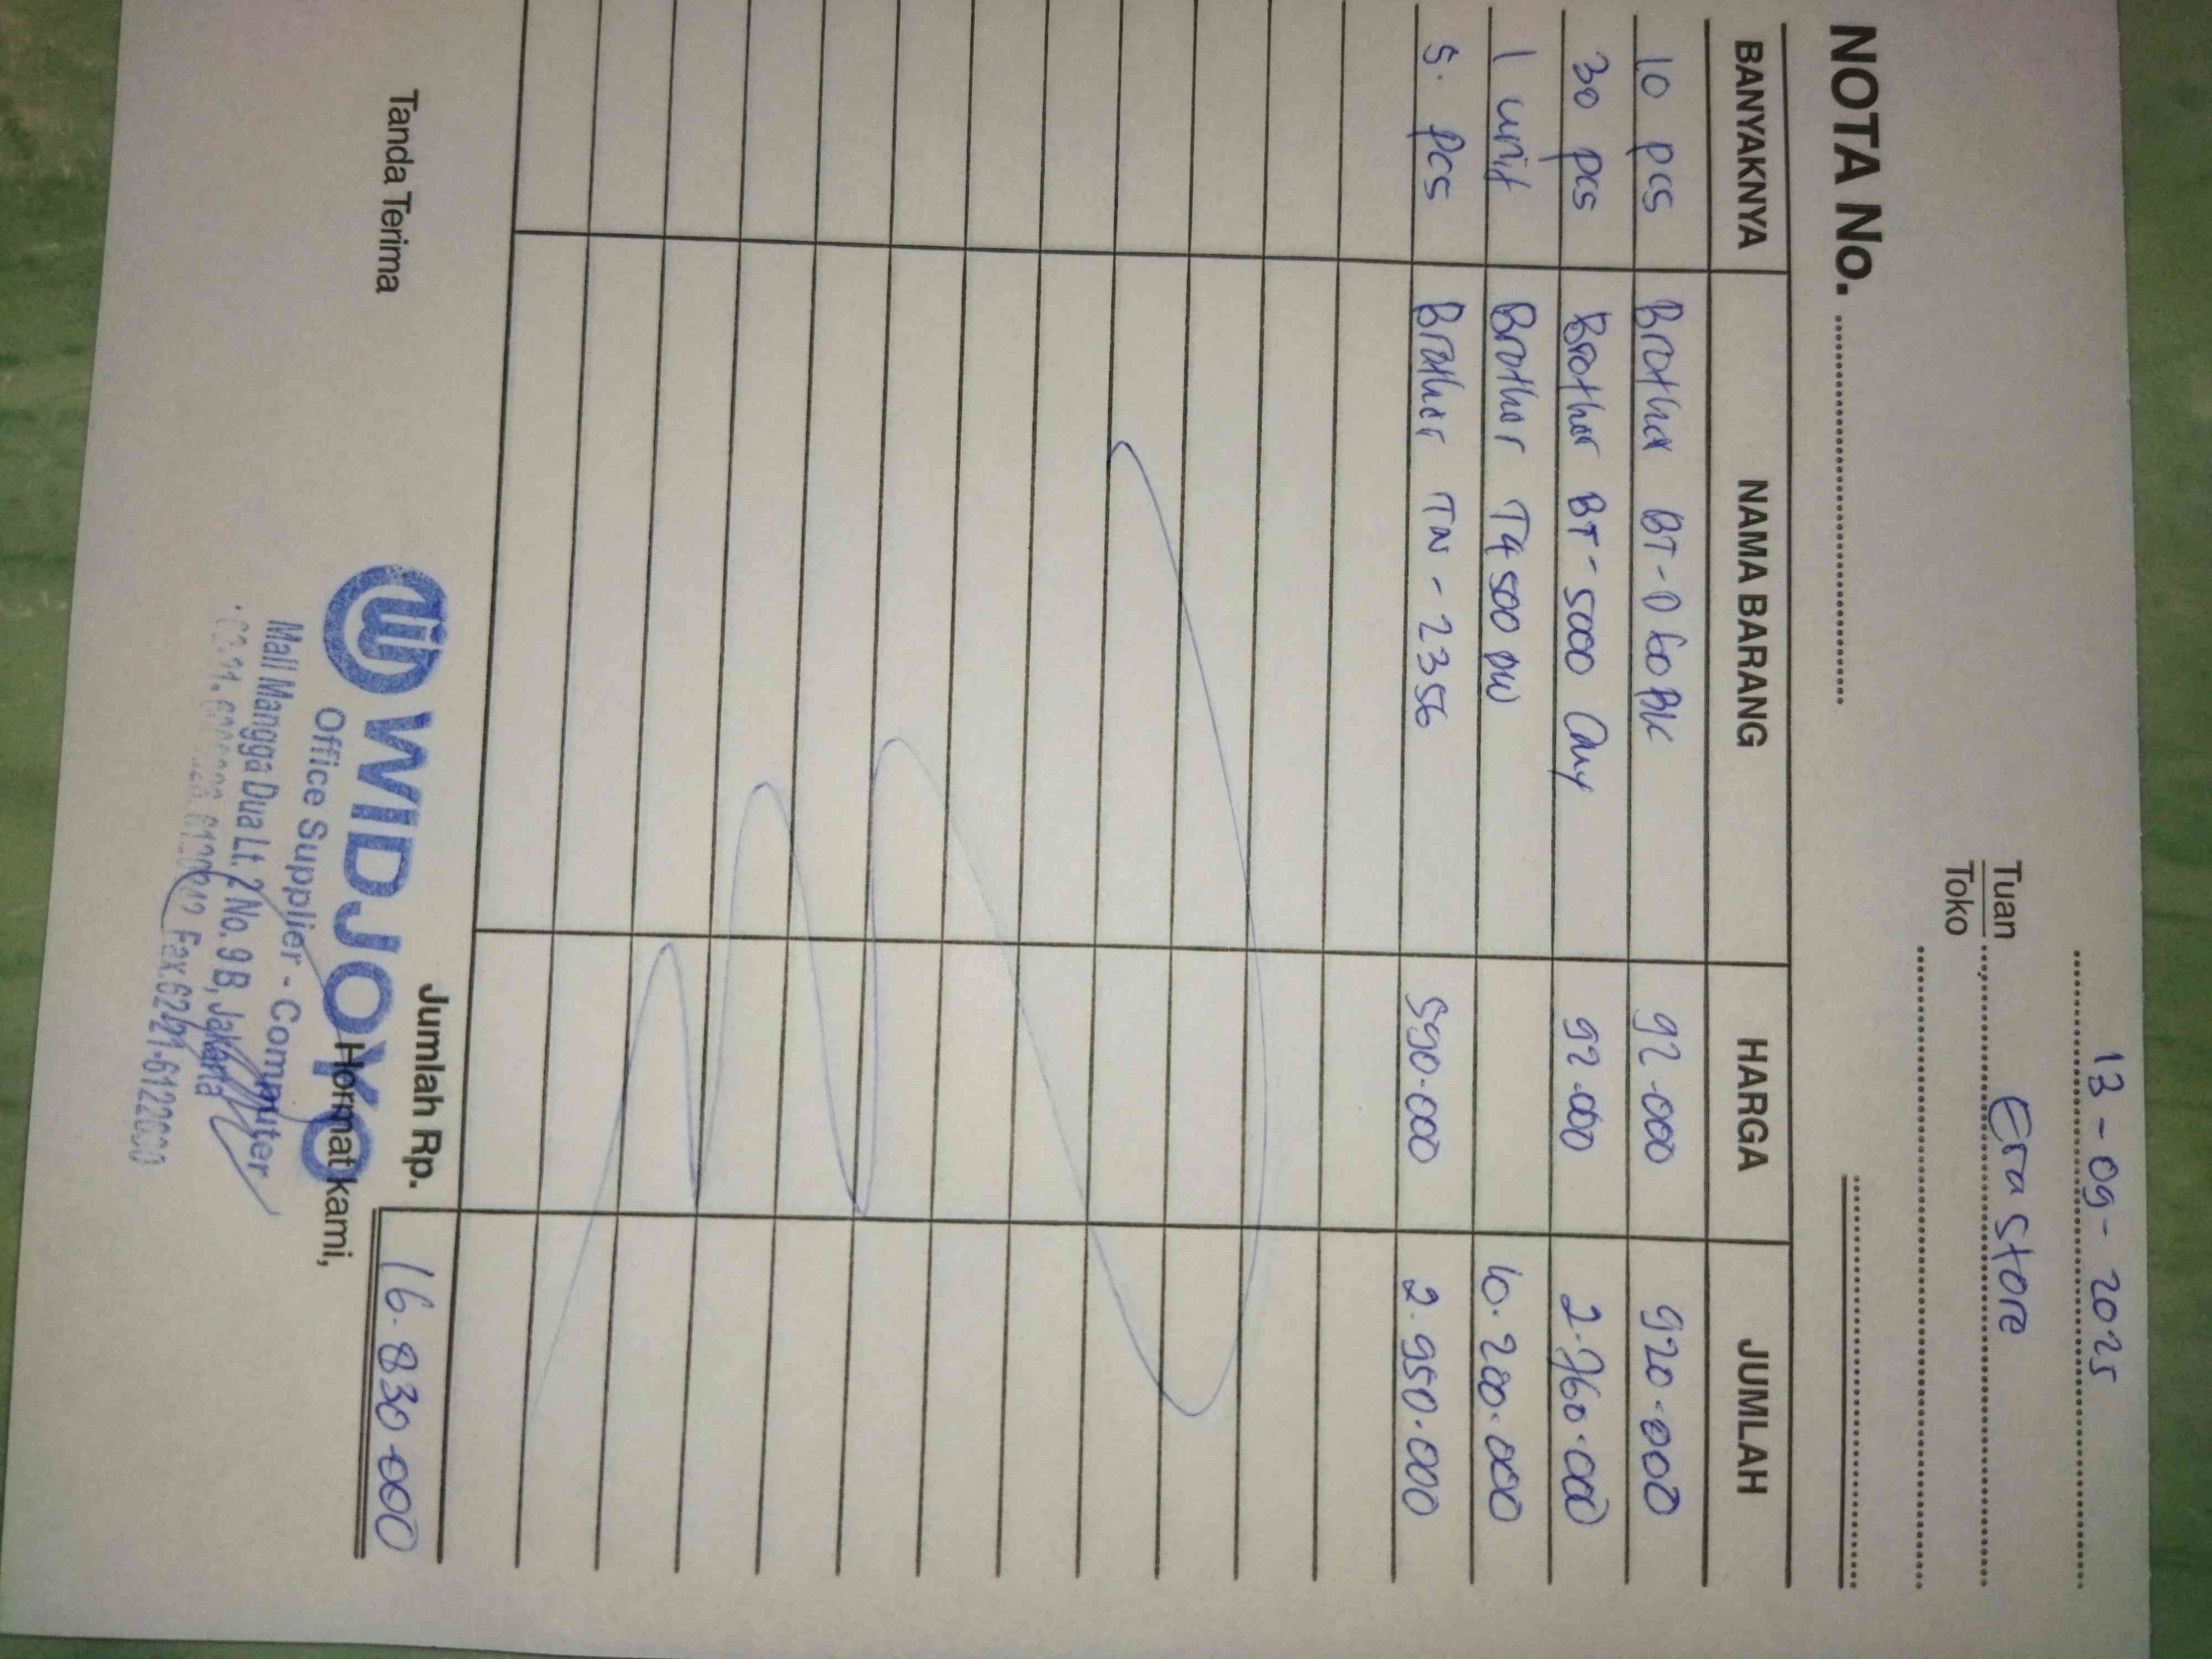 13-09-2025
Tuan Era Store
Toko
NOTA No.
BANYAKNYA NAMA BARANG HARGA JUMLAH
10 pcs Brother BT-D60BK 92.000 920.000
30 pcs Brother BT-5000 Cmy 92.000 2.760.000
1 unit Brother T4500DW 10.200.000
5 pcs Brother TN-2356 590.000 2.950.000
Jumlah Rp. 16.830.000
Tanda Terima Hormat kami,
WIDJOYO
Office Supplier - Computer
Mall Mangga Dua Lt. 2 No. 9 B, Jakarta
Fax.62-21-6122000